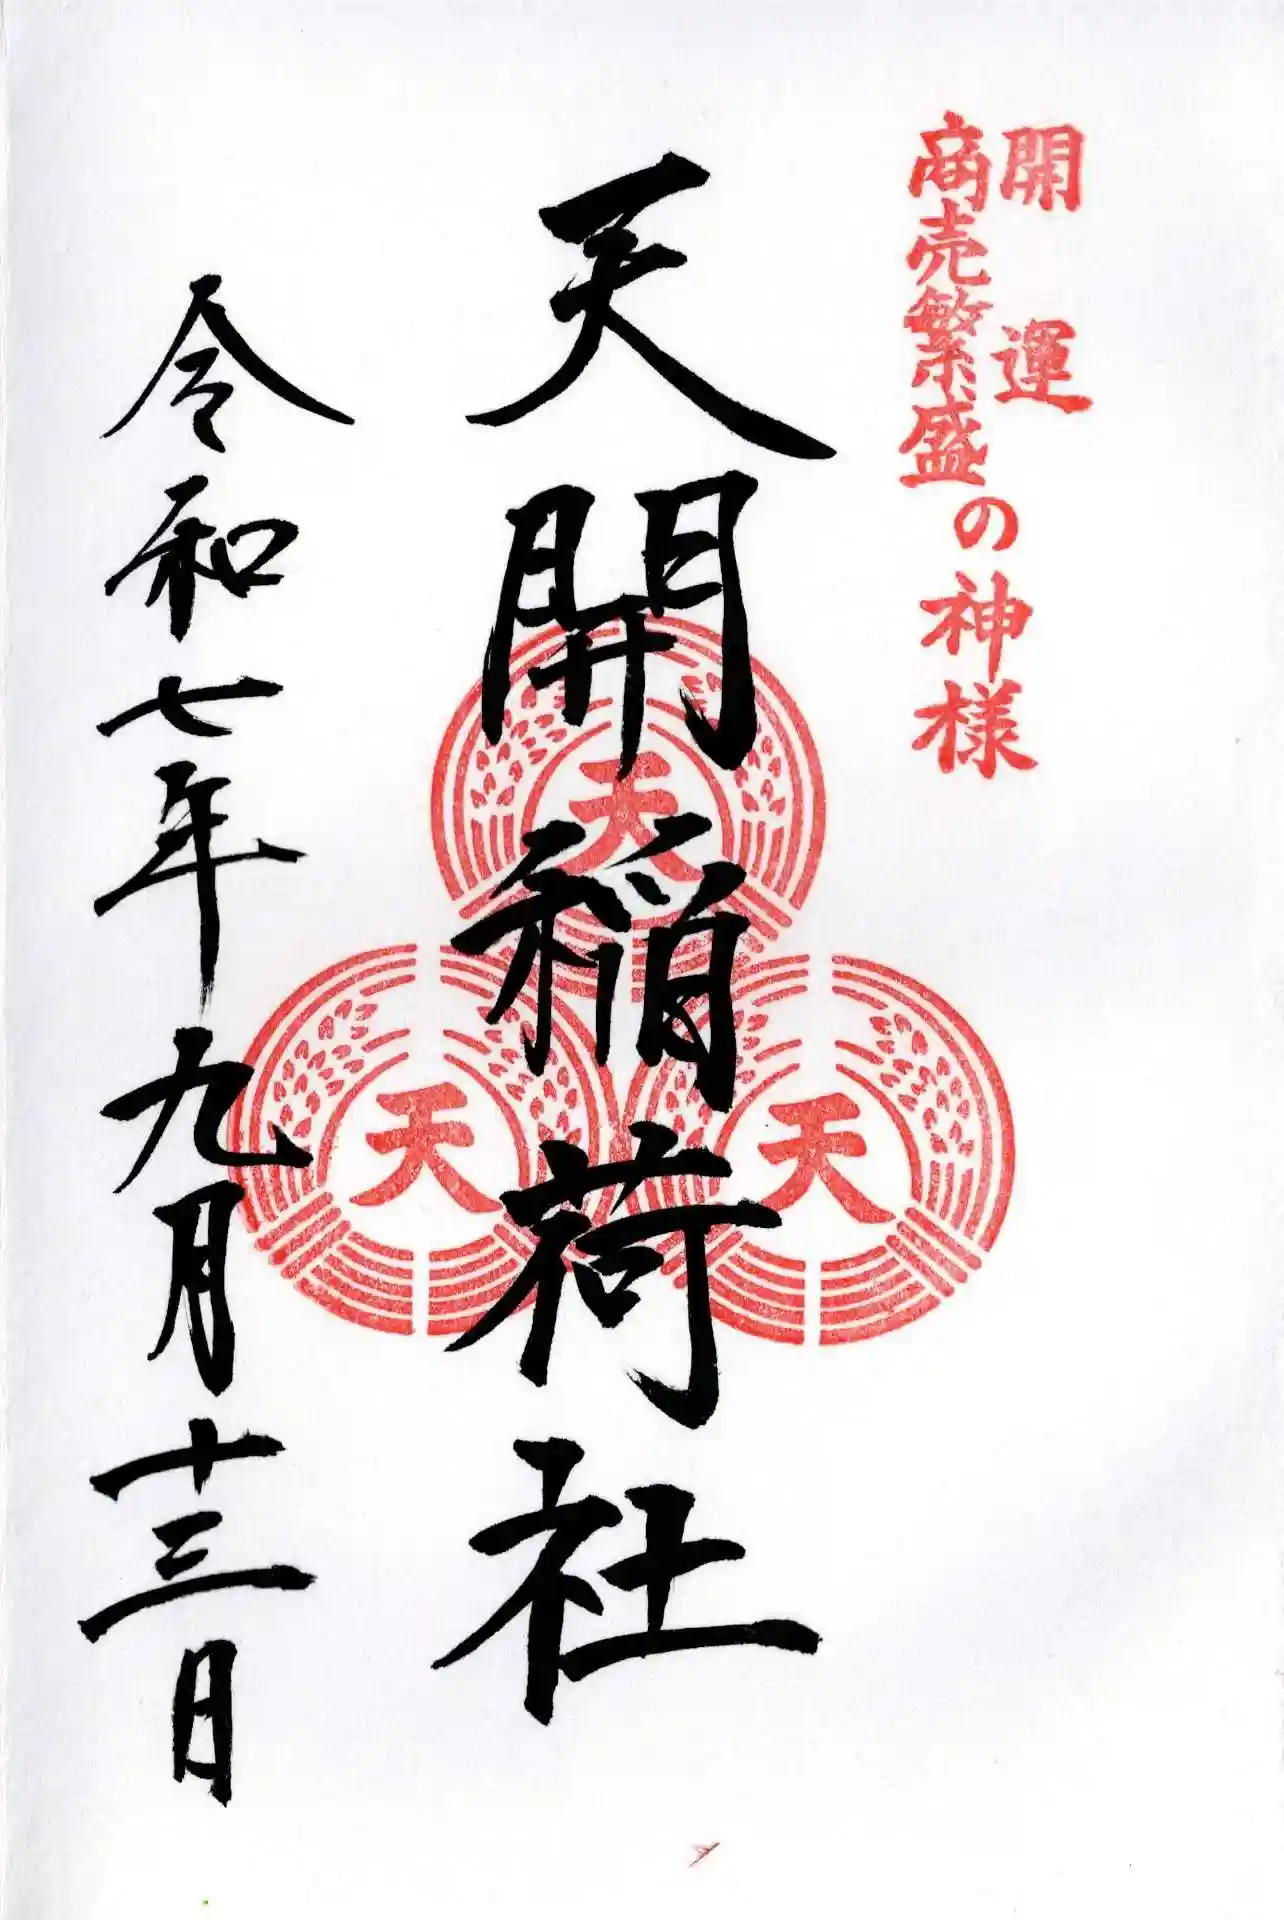 開運
商売繁盛
の神様
天開稲荷社
天
天
天
令和七年九月十三日